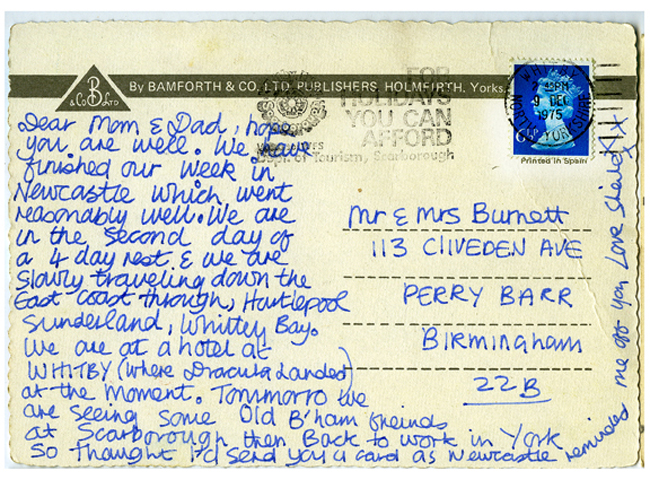 B
& Co LTD
By BAMFORTH & CO. LTD. PUBLISHERS, HOLMFIRTH, Yorks.
FOR
HOLIDAYS
YOU CAN
AFFORD
Dept. of Tourism, Scarborough
WHITBY
PM
9 DEC
1975
NORTH YORKSHIRE
6½P
Printed in Spain
Dear Mom & Dad, hope
you are well. We have
finished our week in
Newcastle which went
reasonably well. We are
in the second day of
a 4 day rest & we are
slowly traveling down the
East coast through, Hartlepool
Sunderland, Whitley Bay.
We are at a hotel at
WHITBY (where Dracula Landed)
at the moment. Tommorro we
are seeing some Old B'ham freinds
at Scarborough then Back to work in York
So thought I'd send you a card as Newcastle
reminds me of you Love Sheila XIX
Mr & Mrs Burnett
113 CLIVEDEN AVE
PERRY BARR
Birmingham
22B